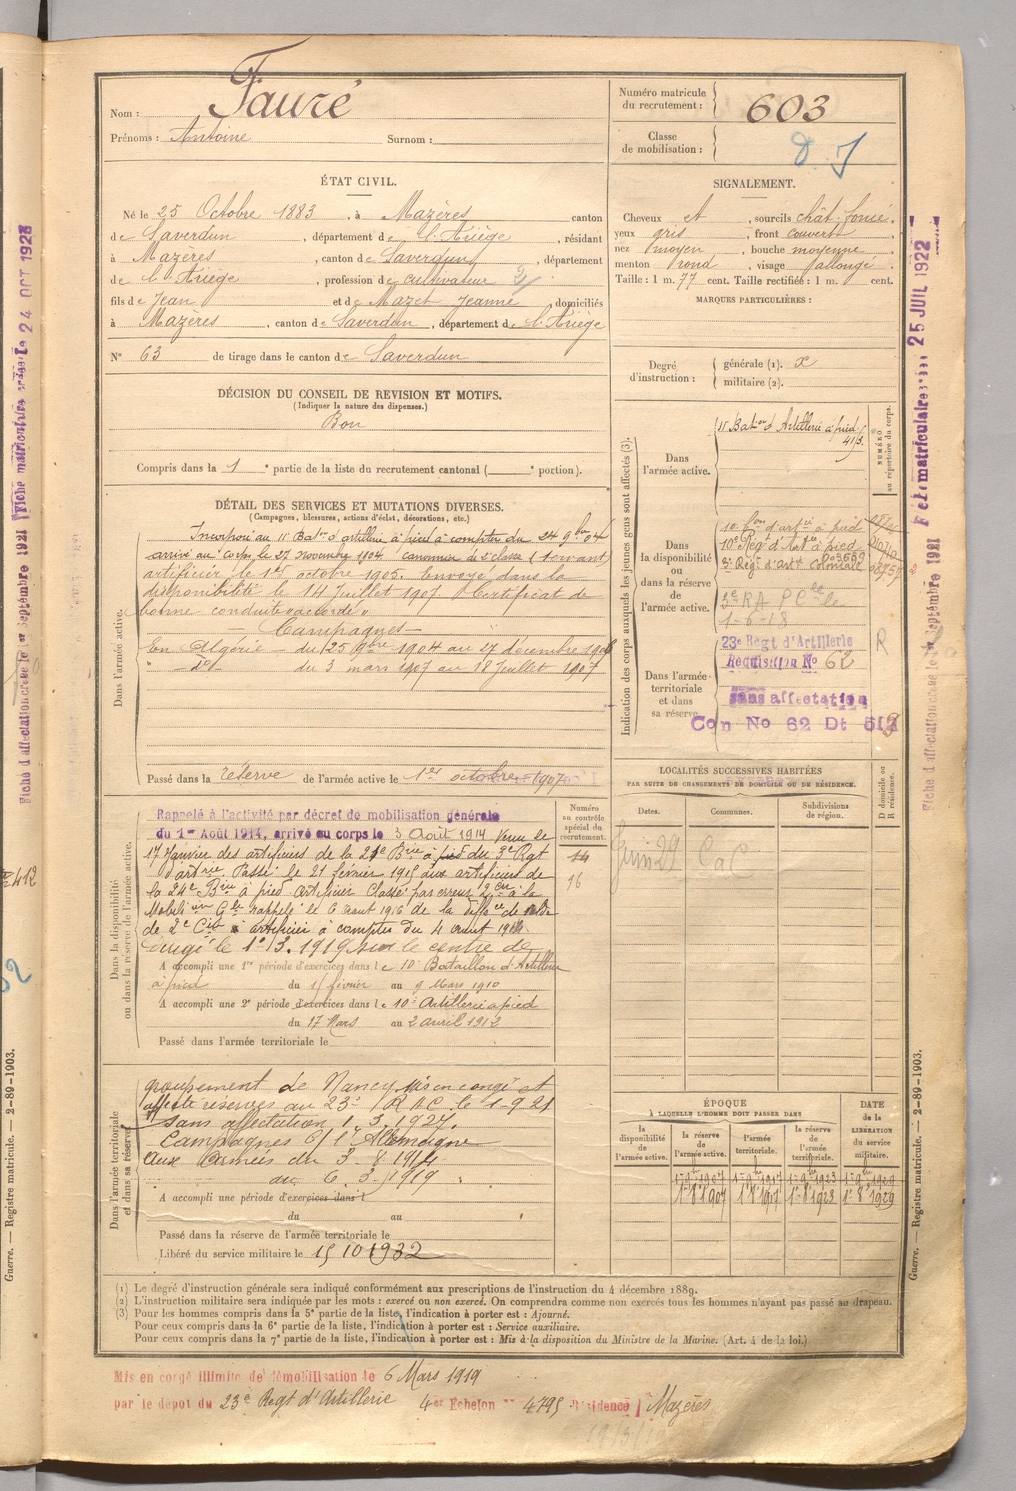 Nom : Fauré
Prénoms : Antoine Surnom :
Numéro matricule du recrutement : 603
Classe de mobilisation :
ÉTAT CIVIL.
Né le 25 Octobre 1883, à Mazères canton
de Saverdun, département de l'Ariège, résidant
à Mazères, canton de Saverdun, département
de l'Ariège, profession de cultivateur
fils de Jean et de Mazet Jeanne domiciliés
à Mazères, canton de Saverdun, département de l'Ariège
N° 63 de tirage dans le canton de Saverdun
SIGNALEMENT.
Cheveux et, sourcils chât. foncé.
yeux gris, front couvert,
nez moyen, bouche moyenne
menton rond, visage allongé.
Taille : 1 m. 77 cent. Taille rectifiée : 1 m. cent.
MARQUES PARTICULIÈRES :
Degré d'instruction : générale (1). x
militaire (2).
DÉCISION DU CONSEIL DE REVISION ET MOTIFS.
(Indiquer la nature des dispenses.)
Bon
Compris dans la 1e partie de la liste du recrutement cantonal ( e portion).
DÉTAIL DES SERVICES ET MUTATIONS DIVERSES.
(Campagnes, blessures, actions d'éclat, décorations, etc.)
Dans l'armée active.
Incorporé au 11e Baton d'artillerie à pied à compter du 24 9bre 04
arrivé au corps le 27 novembre 1904 canonnier de 2e classe (servant)
artificier le 1er octobre 1905. Envoyé dans la
disponibilité le 14 juillet 1907. Certificat de
bonne conduite "accordé"
Campagnes
En Algérie du 25 9bre 1904 au 27 décembre 1906
— do — du 3 mars 1907 au 18 juillet 1907
Passé dans la réserve de l'armée active le 1er octobre 1907
Indication des corps auxquels les jeunes gens sont affectés (3).
Dans l'armée active.
11e Baton d'Artillerie à pied
NUMÉRO au répertoire du corps.
Dans la disponibilité ou dans la réserve de l'armée active.
10e Bon d'artie à pied
10e Régt d'Artie à pied
3e Régt d'arte coloniale
1-6-18
Dans l'armée territoriale et dans sa réserve
23e Régt d'Artillerie
Réquisition No 62
sans affectation
Con No 62 Dt 513
LOCALITÉS SUCCESSIVES HABITÉES
PAR SUITE DE CHANGEMENTS DE DOMICILE OU DE RÉSIDENCE.
Dates. Communes. Subdivisions de région. D domicile ou R résidence.
Juin 29 CaC
Dans la disponibilité ou dans la réserve de l'armée active.
Numéro au contrôle spécial du recrutement.
14
16
Rappelé à l'activité par décret de mobilisation générale
du 1er Août 1914, arrivé au corps le 3 Août 1914 Venu le
17 Janvier des artificiers de la 21e Brie à pied du 3e Rgt
d'artrie Passé le 21 février 1915 aux artificiers de
la 24e Brie à pied Artificier Classé par erreur
Mobilion Gle rappelé le 6 août 1916 de la
de 2e Cie artificier à compter du 4 août
Dirigé le 1er 3. 1919 sur le centre de
A accompli une 1re période d'exercices dans le 10e Bataillon d'Artillerie
à pied du 15 février au 9 Mars 1910
A accompli une 2e période d'exercices dans le 10e Artillerie à pied
du 17 Mars au 2 avril 1912
Passé dans l'armée territoriale le
Dans l'armée territoriale et dans sa réserve.
groupement de Nancy mis en congé et
affecté réserves au 23e RAC le 1-9 21
sans affectation 1. 3. 1927.
Campagnes C/ l'Allemagne
aux Armées du 3-8 1914
au 6. 3. 1919
A accompli une période d'exercices dans l
du au
Passé dans la réserve de l'armée territoriale le
Libéré du service militaire le 15 10 1932
ÉPOQUE
À LAQUELLE L'HOMME DOIT PASSER DANS
DATE de la LIBÉRATION du service militaire.
la disponibilité de l'armée active. la réserve de l'armée active. l'armée territoriale. la réserve de l'armée territoriale.
1er 8 1907 1er 8 1917 1er 8 1923 1er 8 1929
(1) Le degré d'instruction générale sera indiqué conformément aux prescriptions de l'instruction du 4 décembre 1889.
(2) L'instruction militaire sera indiquée par les mots : exercé ou non exercé. On comprendra comme non exercés tous les hommes n'ayant pas passé au drapeau.
(3) Pour les hommes compris dans la 5e partie de la liste, l'indication à porter est : Ajourné.
Pour ceux compris dans la 6e partie de la liste, l'indication à porter est : Service auxiliaire.
Pour ceux compris dans la 7e partie de la liste, l'indication à porter est : Mis à la disposition du Ministre de la Marine. (Art. 4 de la loi.)
Mis en congé illimité de démobilisation le 6 Mars 1919
par le dépôt du 23e Régt d'Artillerie 4er Echelon No 4795 Résidence Mazères
Guerre. — Registre matricule. — 2-89-1903.
Guerre. — Registre matricule. — 2-89-1903.
Fiche d'affectation créée le 1er Septembre 1921 Fiche matriculaire créée le 24 OCT 1923
Fiche d'affectation créée le 1er Septembre 1921 Fiche matriculaire créée le 25 JUIL 1922